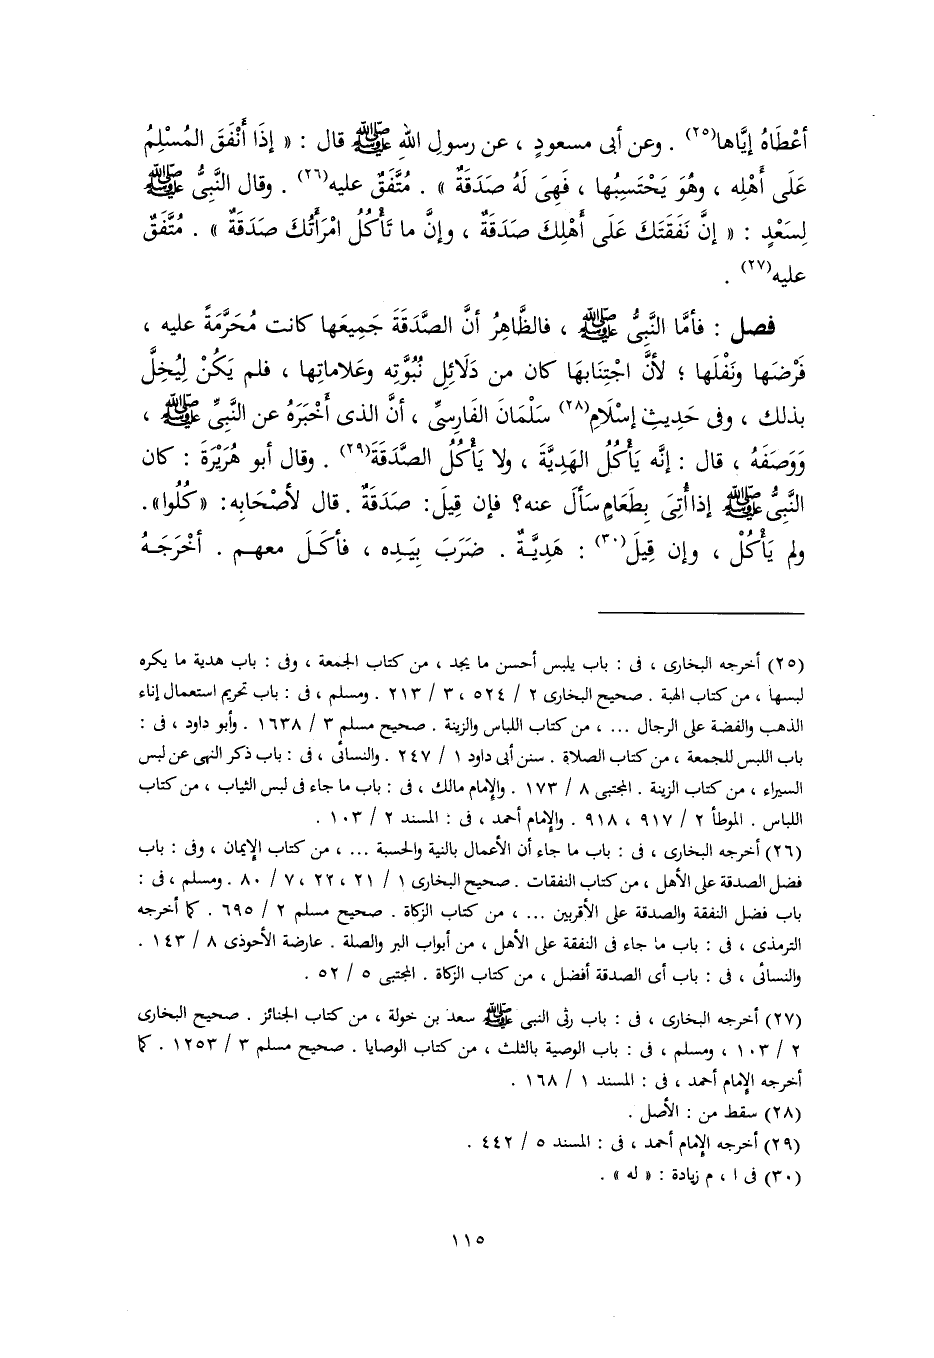 أعْطَاهُ إيَّاها(٢٥) . وعن أبى مسعودٍ ، عن رسولِ اللهِ ﷺ قال : « إذَا أَنْفَقَ المُسْلِمُ
عَلَى أَهْلِه ، وهُوَ يَحْتَسِبُها ، فَهِىَ لَهُ صَدَقَةٌ » . مُتَّفَقٌ عليه(٢٦) . وقال النَّبِىُّ ﷺ
لِسَعْدٍ : « إنَّ نَفَقَتَكَ عَلَى أَهْلِكَ صَدَقَةٌ ، وإنَّ ما تَأْكُلُ امْرَأَتُكَ صَدَقَةٌ » . مُتَّفَقٌ
عليه(٢٧) .
فصل : فأمَّا النَّبِىُّ ﷺ ، فالظَّاهِرُ أنَّ الصَّدَقَةَ جَمِيعَها كانت مُحَرَّمَةً عليه ،
فَرْضَها ونَفْلَها ؛ لأنَّ اجْتِنابَها كان من دَلَائِلِ نُبُوَّتِه وعَلاماتِها ، فلم يَكُنْ لِيُخِلَّ
بذلك ، وفى حَدِيثِ إسْلَامِ(٢٨) سَلْمَانَ الفَارِسىِّ ، أنَّ الذى أَخْبَرَهُ عن النَّبِىِّ ﷺ ،
وَوَصَفَهُ ، قال : إنَّه يَأْكُلُ الهَدِيَّةَ ، ولا يَأْكُلُ الصَّدَقَةَ(٢٩) . وقال أبو هُرَيْرَةَ : كان
النَّبِىُّ ﷺ إذا أُتِىَ بِطَعَامٍ سألَ عنه؟ فإن قِيلَ: صَدَقَةٌ . قال لأصْحَابِه: «كُلُوا».
ولم يَأْكُلْ ، وإن قِيلَ(٣٠) : هَدِيَّـةٌ . ضَرَبَ بِيَدِه ، فأكَـلَ معهـم . أخْرَجَـهُ
(٢٥) أخرجه البخارى ، فى : باب يلبس أحسن ما يجد ، من كتاب الجمعة ، وفى : باب هدية ما يكره
لبسها ، من كتاب الهبة . صحيح البخارى ٢ / ٥٢٤ ، ٣ / ٢١٣ . ومسلم ، فى : باب تحريم استعمال إناء
الذهب والفضة على الرجال ... ، من كتاب اللباس والزينة . صحيح مسلم ٣ / ١٦٣٨ . وأبو داود ، فى :
باب اللبس للجمعة ، من كتاب الصلاة . سنن أبى داود ١ / ٢٤٧ . والنسائى ، فى : باب ذكر النهى عن لبس
السيراء ، من كتاب الزينة . المجتبى ٨ / ١٧٣ . والإمام مالك ، فى : باب ما جاء فى لبس الثياب ، من كتاب
اللباس . الموطأ ٢ / ٩١٧ ، ٩١٨ . والإمام أحمد ، فى : المسند ٢ / ١٠٣ .
(٢٦) أخرجه البخارى ، فى : باب ما جاء أن الأعمال بالنية والحسبة ... ، من كتاب الإيمان ، وفى : باب
فضل الصدقة على الأهل ، من كتاب النفقات . صحيح البخارى ١ / ٢١ ، ٢٢ ، ٧ / ٨٠ . ومسلم ، فى :
باب فضل النفقة والصدقة على الأقربين ... ، من كتاب الزكاة . صحيح مسلم ٢ / ٦٩٥ . كما أخرجه
الترمذى ، فى : باب ما جاء فى النفقة على الأهل ، من أبواب البر والصلة . عارضة الأحوذى ٨ / ١٤٣ .
والنسائى ، فى : باب أى الصدقة أفضل ، من كتاب الزكاة . المجتبى ٥ / ٥٢ .
(٢٧) أخرجه البخارى ، فى : باب رثى النبى ﷺ سعد بن خولة ، من كتاب الجنائز . صحيح البخارى
٢ / ١٠٣ ، ومسلم ، فى : باب الوصية بالثلث ، من كتاب الوصايا . صحيح مسلم ٣ / ١٢٥٣ . كما
أخرجه الإمام أحمد ، فى : المسند ١ / ١٦٨ .
(٢٨) سقط من : الأصل .
(٢٩) أخرجه الإمام أحمد ، فى : المسند ٥ / ٤٤٢ .
(٣٠) فى ا ، م زيادة : « له » .
١١٥